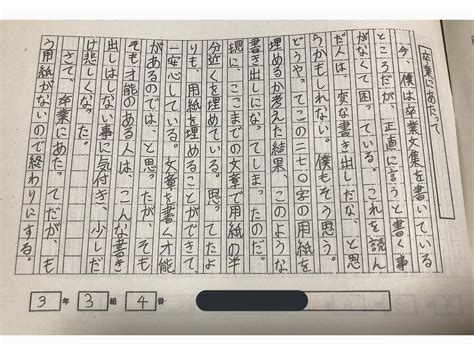 卒業にあたって
今、僕は卒業文集を書いている
ところだが、正直に言うと書く事
がなくて困っている。これを読ん
だ人は、変な書き出しだな、と思
うかもしれない。僕もそう思う。
どうやってこの二七〇字の用紙を
埋めるか考えた結果、このような
書き出しになってしまったのだ。
現に、ここまでの文章で用紙の半
分近くを埋めている。思ってたよ
りも、用紙を埋めることができて
一安心している。文章を書く才能
があるのでは、と思ったが、そも
そも才能のある人は、こんな書き
出しはしない事に気付き、少しだ
け悲しくなった。
さて、卒業にあたってだが、も
う用紙がないので終わりにする。
3年 3組 4番